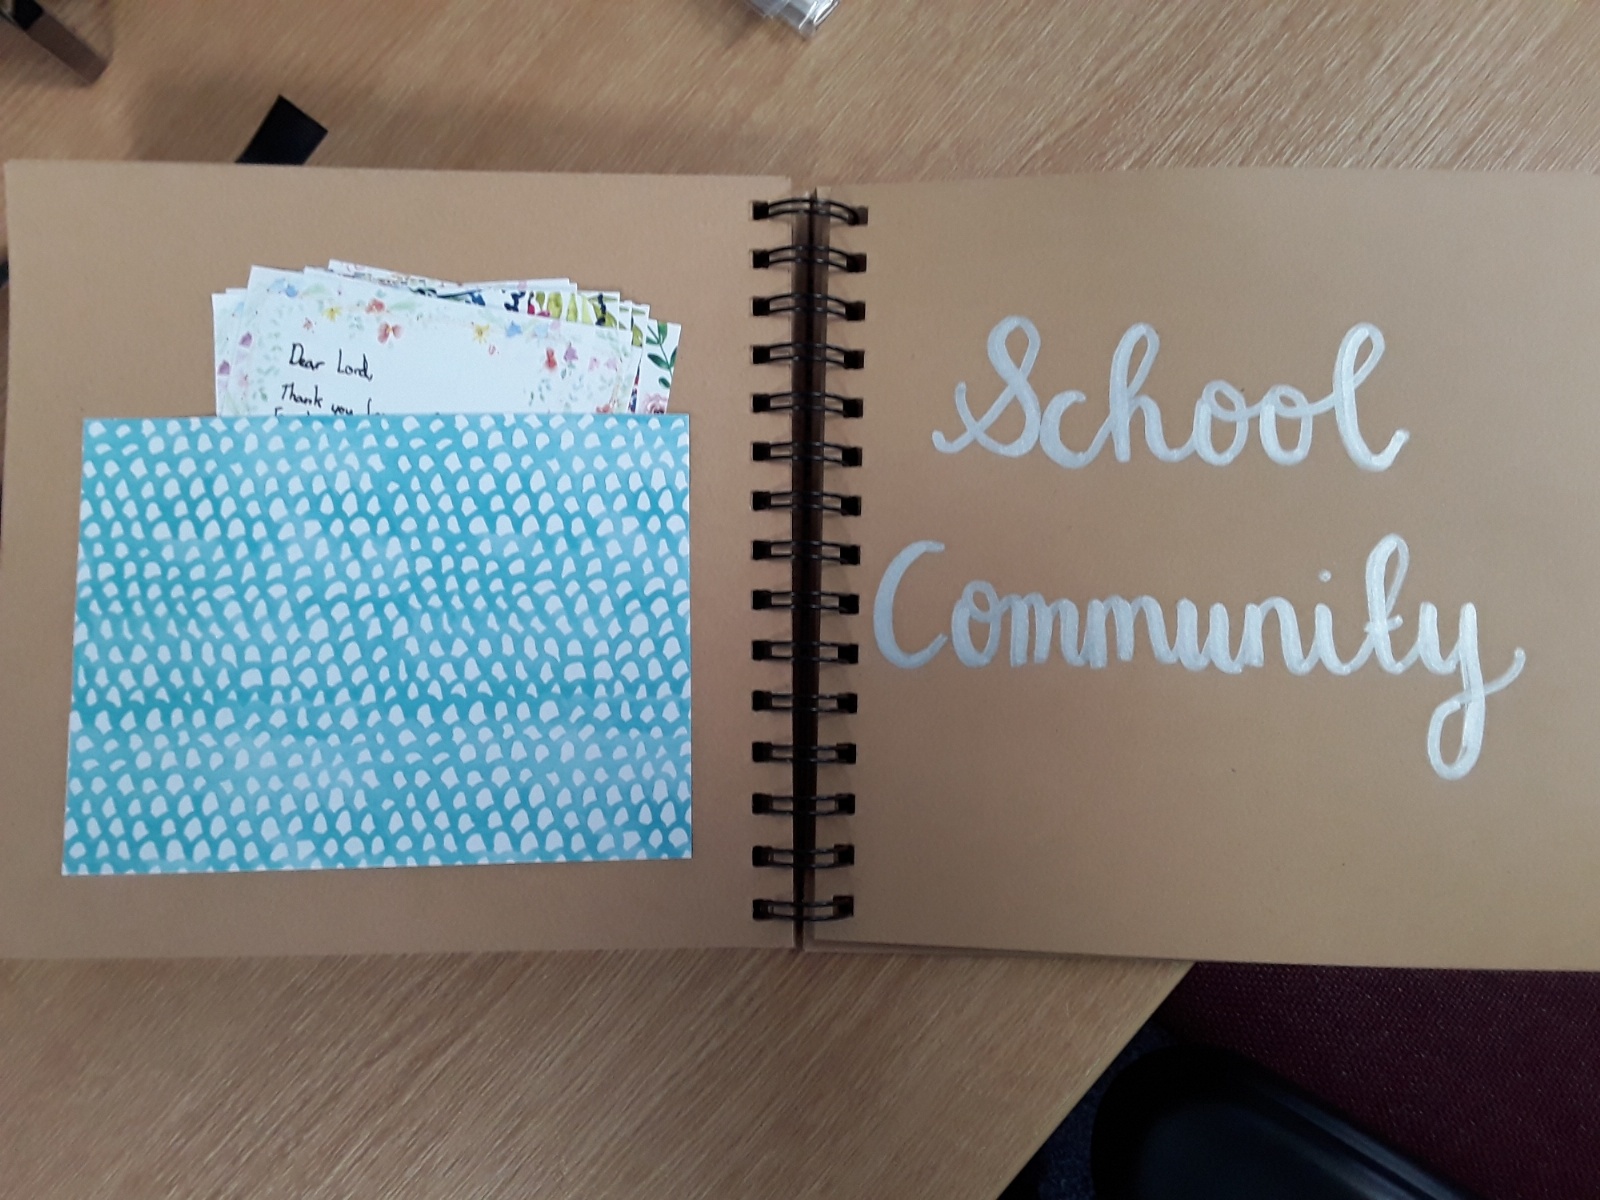 Dear Lord,
Thank you
School
Community